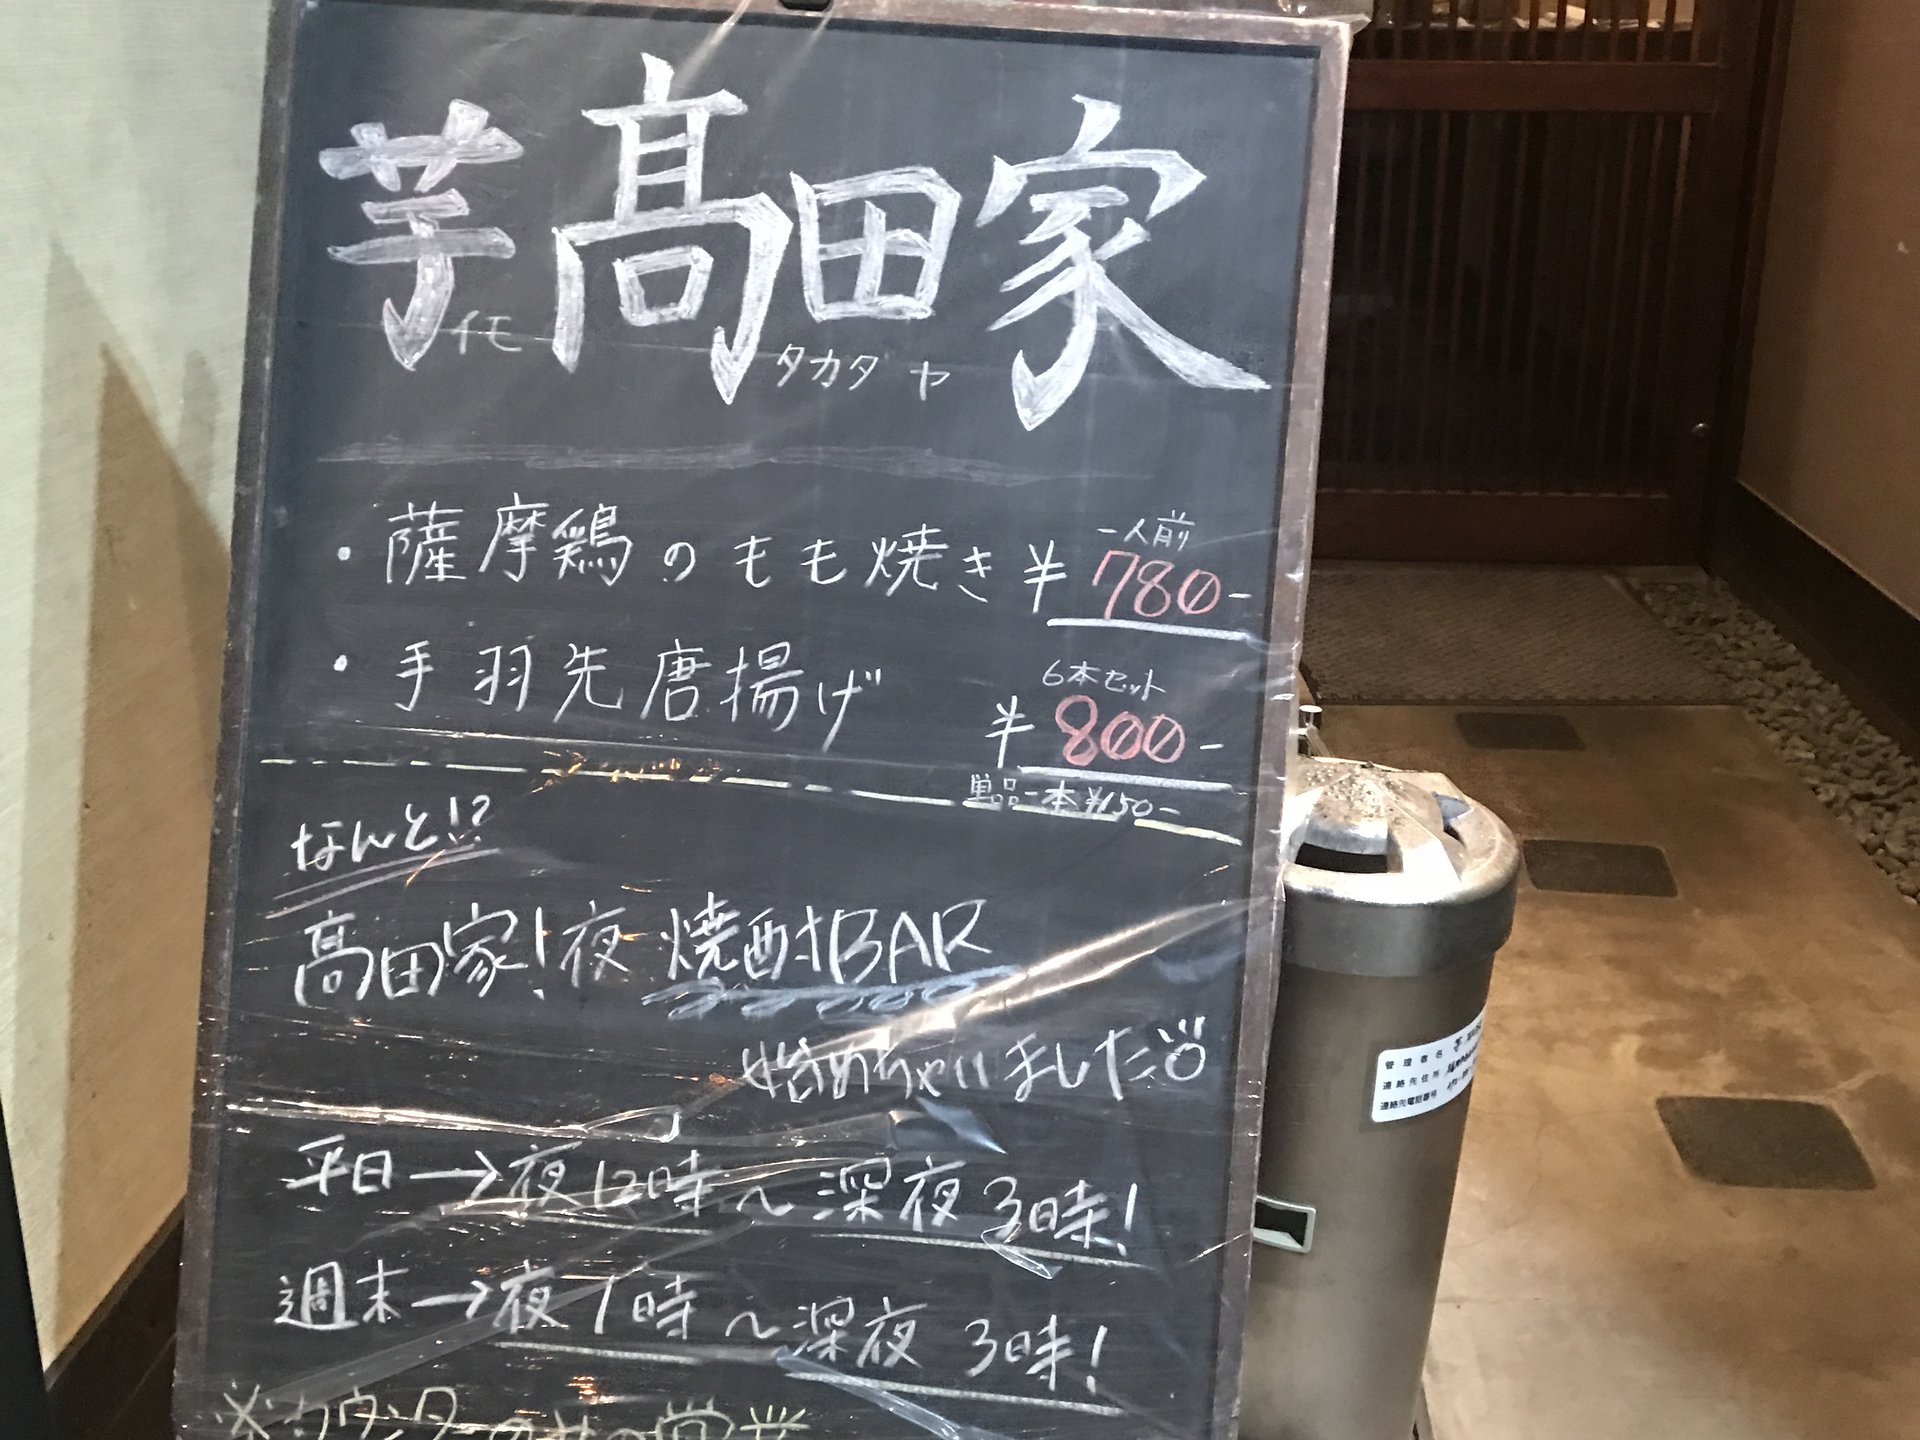 芋髙田家
イモ タカダ ヤ
・薩摩鶏のもも焼き 一人前 ¥780-
・手羽先唐揚げ 6本セット ¥800-
単品一本¥150-
なんと!?
髙田家!夜 焼酎BAR
始めちゃいました
平日→夜12時〜深夜3時!
週末→夜1時〜深夜3時!
※カウンターのみの営業
管理者名
連絡先住所
連絡先電話番号